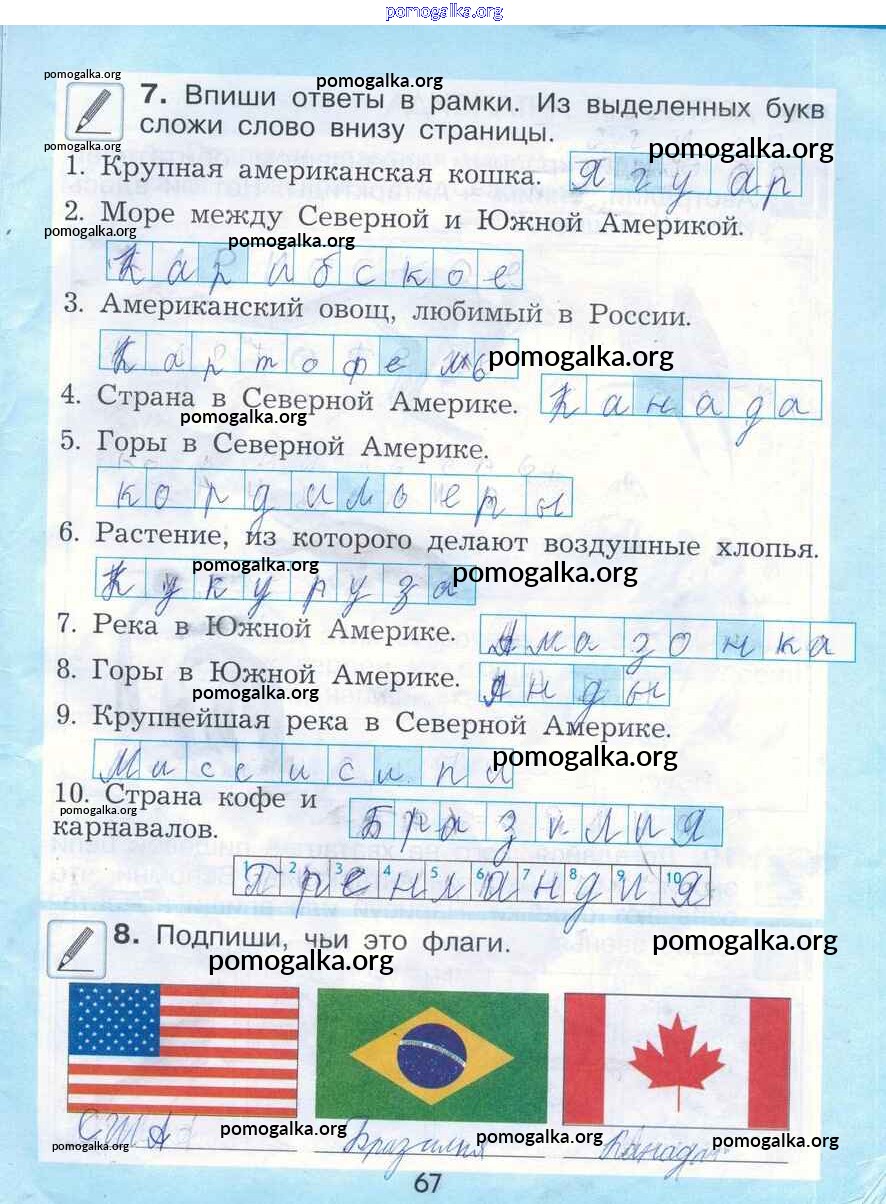 pomogalka.org
pomogalka.org
pomogalka.org
7. Впиши ответы в рамки. Из выделенных букв
сложи слово внизу страницы.
pomogalka.org
pomogalka.org
1. Крупная американская кошка. Ягуар
2. Море между Северной и Южной Америкой.
pomogalka.org
pomogalka.org
Карибское
3. Американский овощ, любимый в России.
Картофель
pomogalka.org
4. Страна в Северной Америке. Канада
pomogalka.org
5. Горы в Северной Америке.
кордильеры
6. Растение, из которого делают воздушные хлопья.
pomogalka.org
pomogalka.org
Кукуруза
7. Река в Южной Америке. Амазонка
8. Горы в Южной Америке. Анды
pomogalka.org
9. Крупнейшая река в Северной Америке.
Миссисипи
pomogalka.org
10. Страна кофе и
pomogalka.org
карнавалов. Бразилия
1 2 3 4 5 6 7 8 9 10
Гренландия
8. Подпиши, чьи это флаги.
pomogalka.org
pomogalka.org
США Бразилия Канада
pomogalka.org
pomogalka.org
pomogalka.org
pomogalka.org
67